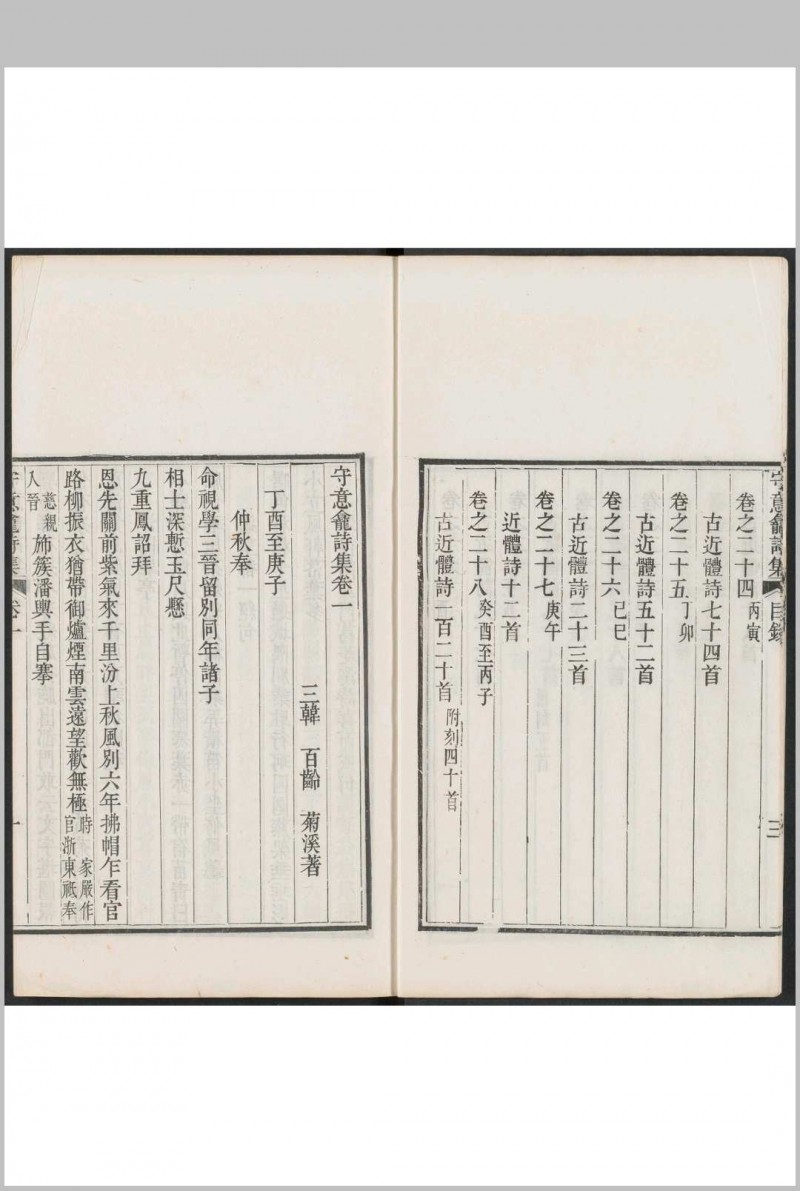 守意龕詩集 目錄 三
卷之二十四 丙寅
古近體詩七十四首
卷之二十五 丁卯
古近體詩五十二首
卷之二十六 己巳
古近體詩二十三首
卷之二十七 庚午
近體詩十二首
卷之二十八 癸酉至丙子
古近體詩一百二十首 附刻四十首
守意龕詩集卷一
三韓 百齡 菊溪著
丁酉至庚子
仲秋奉
命視學三晉留別同年諸子
相士深慙玉尺懸
九重鳳詔拜
恩先關前紫氣來千里汾上秋風別六年拂帽乍看官
路柳振衣猶帶御爐煙南雲遠望歡無極 時 家嚴作官浙東祗奉
慈親人晉 斾簇潘輿手自搴
守意龕詩集 卷一 一